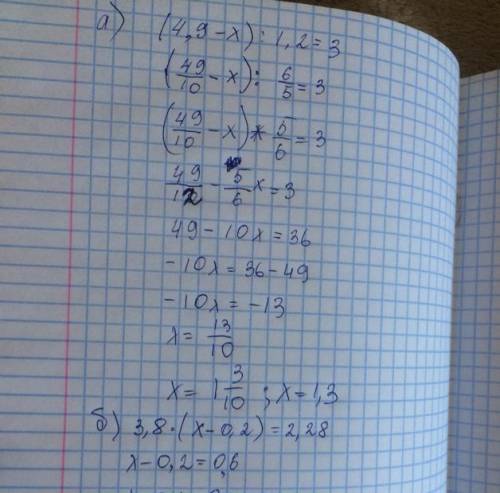 а) (4,9-x):1,2=3
(49/10 - x): 6/5 = 3
(49/10 - x) * 5/6 = 3
49/12 - 5/6 x = 3
49-10x=36
-10x=36-49
-10x=-13
x= 13/10
x= 1 3/10 ; x=1,3
б) 3,8·(x-0,2)=2,28
x-0,2=0,6